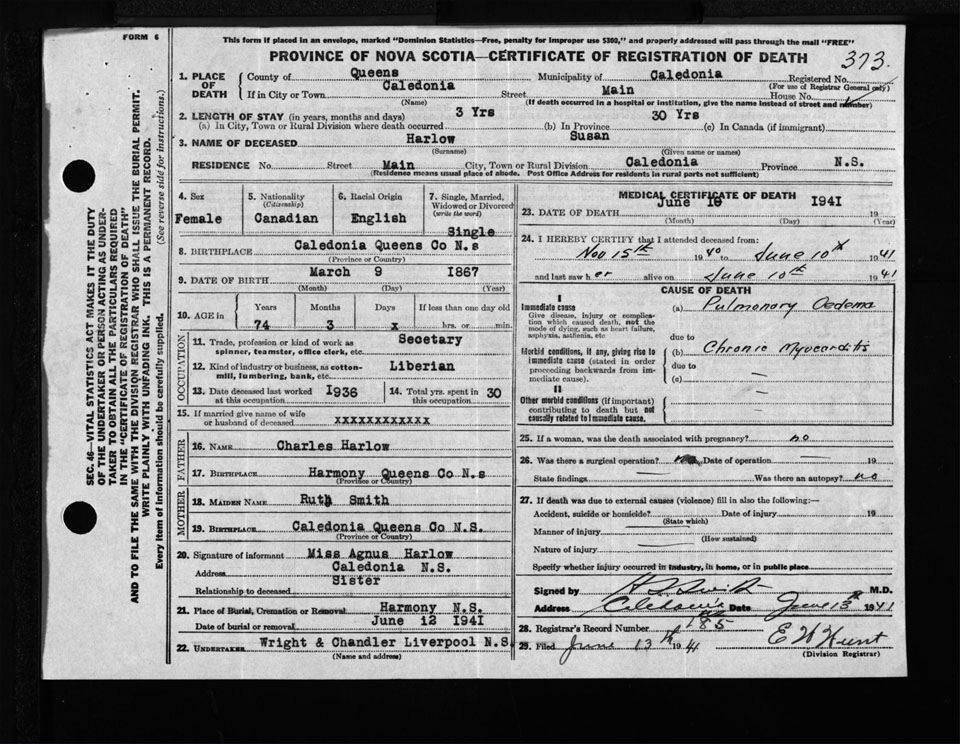 FORM 6
This form if placed in an envelope, marked "Dominion Statistics—Free, penalty for improper use $300," and properly addressed will pass through the mail "FREE"
PROVINCE OF NOVA SCOTIA—CERTIFICATE OF REGISTRATION OF DEATH
373.
SEC. 46—VITAL STATISTICS ACT MAKES IT THE DUTY
OF THE UNDERTAKER OR PERSON ACTING AS UNDER-
TAKER TO OBTAIN ALL THE PARTICULARS REQUIRED
IN THE "CERTIFICATE OF REGISTRATION OF DEATH"
AND TO FILE THE SAME WITH THE DIVISION REGISTRAR WHO SHALL ISSUE THE BURIAL PERMIT.
WRITE PLAINLY WITH UNFADING INK. THIS IS A PERMANENT RECORD.
Every item of information should be carefully supplied. (See reverse side for instructions.)
1. PLACE OF DEATH
County of Queens Municipality of Caledonia Registered No.
(For use of Registrar General only)
If in City or Town Caledonia Street Main House No.
(Name) (If death occurred in a hospital or institution, give the name instead of street and number)
2. LENGTH OF STAY (in years, months and days)
(a) In City, Town or Rural Division where death occurred 3 Yrs (b) In Province 30 Yrs (c) In Canada (if immigrant)
3. NAME OF DECEASED Harlow Susan
(Surname) (Given name or names)
RESIDENCE No. Street Main City, Town or Rural Division Caledonia Province N.S.
(Residence means usual place of abode. Post Office Address for residents in rural parts not sufficient)
4. Sex
Female
5. Nationality
(Citizenship)
Canadian
6. Racial Origin
English
7. Single, Married,
Widowed or Divorced
(write the word)
Single
8. BIRTHPLACE Caledonia Queens Co N.s
(Province or Country)
9. DATE OF BIRTH March 9 1867
(Month) (Day) (Year)
10. AGE in
Years Months Days If less than one day old
74 3 x hrs. or min.
OCCUPATION
11. Trade, profession or kind of work as
spinner, teamster, office clerk, etc. Secetary
12. Kind of industry or business, as cotton-
mill, lumbering, bank, etc. Liberian
13. Date deceased last worked
at this occupation 1936
14. Total yrs. spent in
this occupation 30
15. If married give name of wife
or husband of deceased xxxxxxxxxxxx
FATHER
16. NAME Charles Harlow
17. BIRTHPLACE Harmony Queens Co N.s
(Province or Country)
MOTHER
18. MAIDEN NAME Ruth Smith
19. BIRTHPLACE Caledonia Queens Co N.S.
(Province or Country)
20. Signature of informant Miss Agnus Harlow
Address Caledonia N.S.
Relationship to deceased Sister
21. Place of Burial, Cremation or Removal Harmony N.S.
Date of burial or removal June 12 1941
22. UNDERTAKER Wright & Chandler Liverpool N.S.
(Name and address)
MEDICAL CERTIFICATE OF DEATH
23. DATE OF DEATH June 10 1941 19
(Month) (Day) (Year)
24. I HEREBY CERTIFY that I attended deceased from:
Nov 15th 1940 to June 10th 1941
and last saw her alive on June 10th 1941
CAUSE OF DEATH
I
Immediate cause
Give disease, injury or complica-
tion which caused death, not the
mode of dying, such as heart failure,
asphyxia, asthenia, etc
(a) Pulmonary Oedema
due to
Morbid conditions, if any, giving rise to
immediate cause (stated in order
proceeding backwards from im-
mediate cause).
(b) Chronic Myocarditis
due to
(c) —
II
Other morbid conditions (if important)
contributing to death but not
causally related to immediate cause.
25. If a woman, was the death associated with pregnancy? no
26. Was there a surgical operation? no Date of operation — 19
State findings — Was there an autopsy? no
27. If death was due to external causes (violence) fill in also the following:—
Accident, suicide or homicide? Date of injury 19
(State which)
Manner of injury
(How sustained)
Nature of injury
Specify whether injury occurred in industry, in home, or in public place
Signed by M.D.
Address Caledonia Date June 13th 1941
28. Registrar's Record Number 185
29. Filed June 13th 1941 E W Hunt
(Division Registrar)